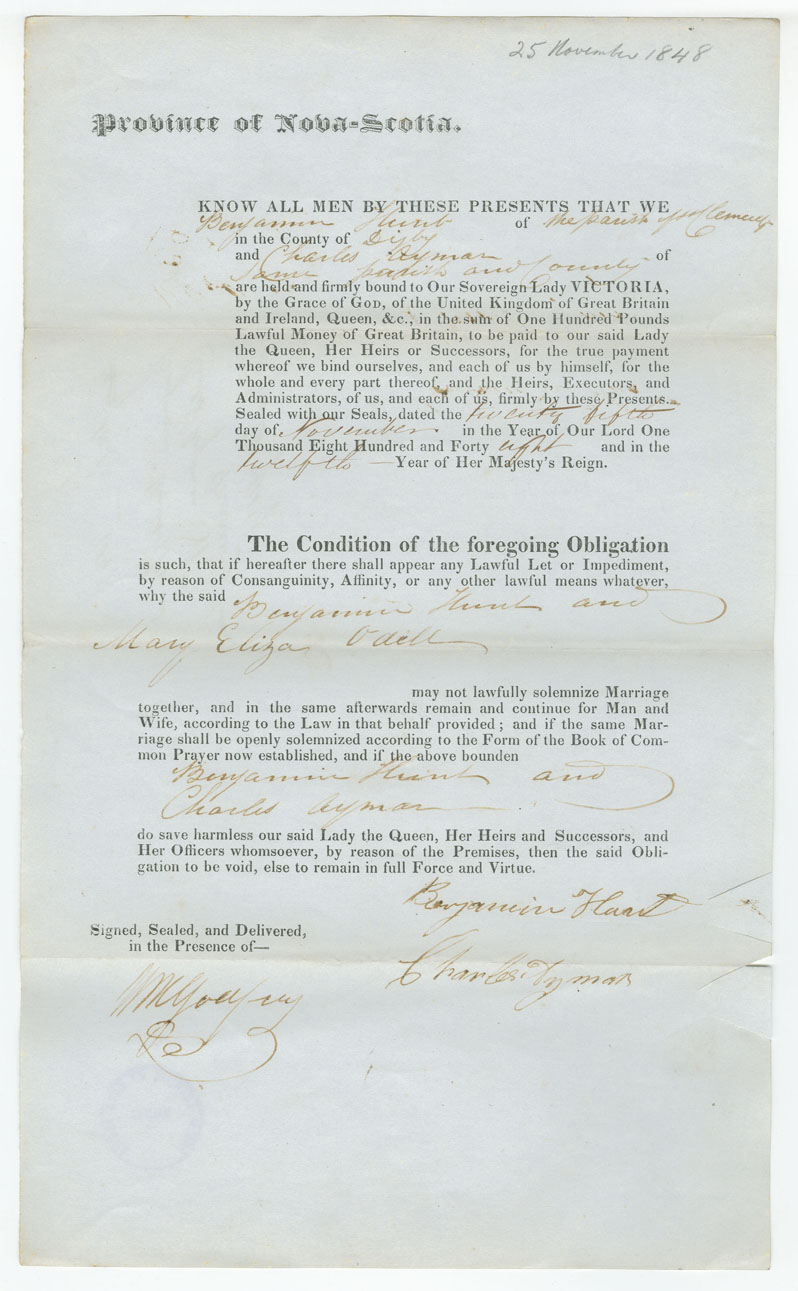 25 November 1848
Province of Nova-Scotia.
KNOW ALL MEN BY THESE PRESENTS THAT WE
Benjamin Hunt of the parish of Clements
in the County of Digby
and Charles Aymar of
Same parish and County
are held and firmly bound to Our Sovereign Lady VICTORIA,
by the Grace of GOD, of the United Kingdom of Great Britain
and Ireland, Queen, &c., in the sum of One Hundred Pounds
Lawful Money of Great Britain, to be paid to our said Lady
the Queen, Her Heirs or Successors, for the true payment
whereof we bind ourselves, and each of us by himself, for the
whole and every part thereof, and the Heirs, Executors, and
Administrators, of us, and each of us, firmly by these Presents.
Sealed with our Seals, dated the twenty fifth
day of November in the Year of Our Lord One
Thousand Eight Hundred and Forty eight and in the
twelfth — Year of Her Majesty's Reign.
The Condition of the foregoing Obligation
is such, that if hereafter there shall appear any Lawful Let or Impediment,
by reason of Consanguinity, Affinity, or any other lawful means whatever,
why the said Benjamin Hunt and
Mary Eliza Odell
may not lawfully solemnize Marriage
together, and in the same afterwards remain and continue for Man and
Wife, according to the Law in that behalf provided; and if the same Mar-
riage shall be openly solemnized according to the Form of the Book of Com-
mon Prayer now established, and if the above bounden
Benjamin Hunt and
Charles Aymar
do save harmless our said Lady the Queen, Her Heirs and Successors, and
Her Officers whomsoever, by reason of the Premises, then the said Obli-
gation to be void, else to remain in full Force and Virtue.
Benjamin Hunt
Signed, Sealed, and Delivered,
in the Presence of—
Charles Aymar
Wm Godfrey